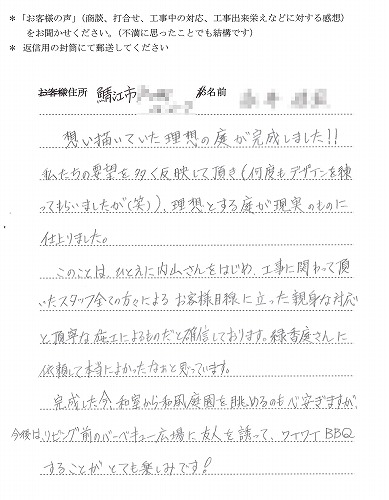 ＊「お客様の声」（商談、打合せ、工事中の対応、工事出来栄えなどに対する感想）
をお聞かせください。（不満に思ったことでも結構です）
＊ 返信用の封筒にて郵送してください
お客様住所 鯖江市
お名前
想い描いていた理想の庭が完成しました!!
私たちの要望を多く反映して頂き(何度もデザインを練
ってもらいましたが(笑))、理想とする庭が現実のものに
仕上りました。
このことは、ひとえに内山さんをはじめ、工事に関わって頂
いたスタッフ全ての方々による お客様目線に立った親身な対応
と、丁寧な施工によるものだと確信しております。緑香庭さんに
依頼して本当によかったなあと思っています。
完成した今、和室から和風庭園を眺めるのも心安ぎますが、
今後は、リビング前のバーベキュー広場に友人を誘って、ワイワイBBQ
することがとても楽しみです!